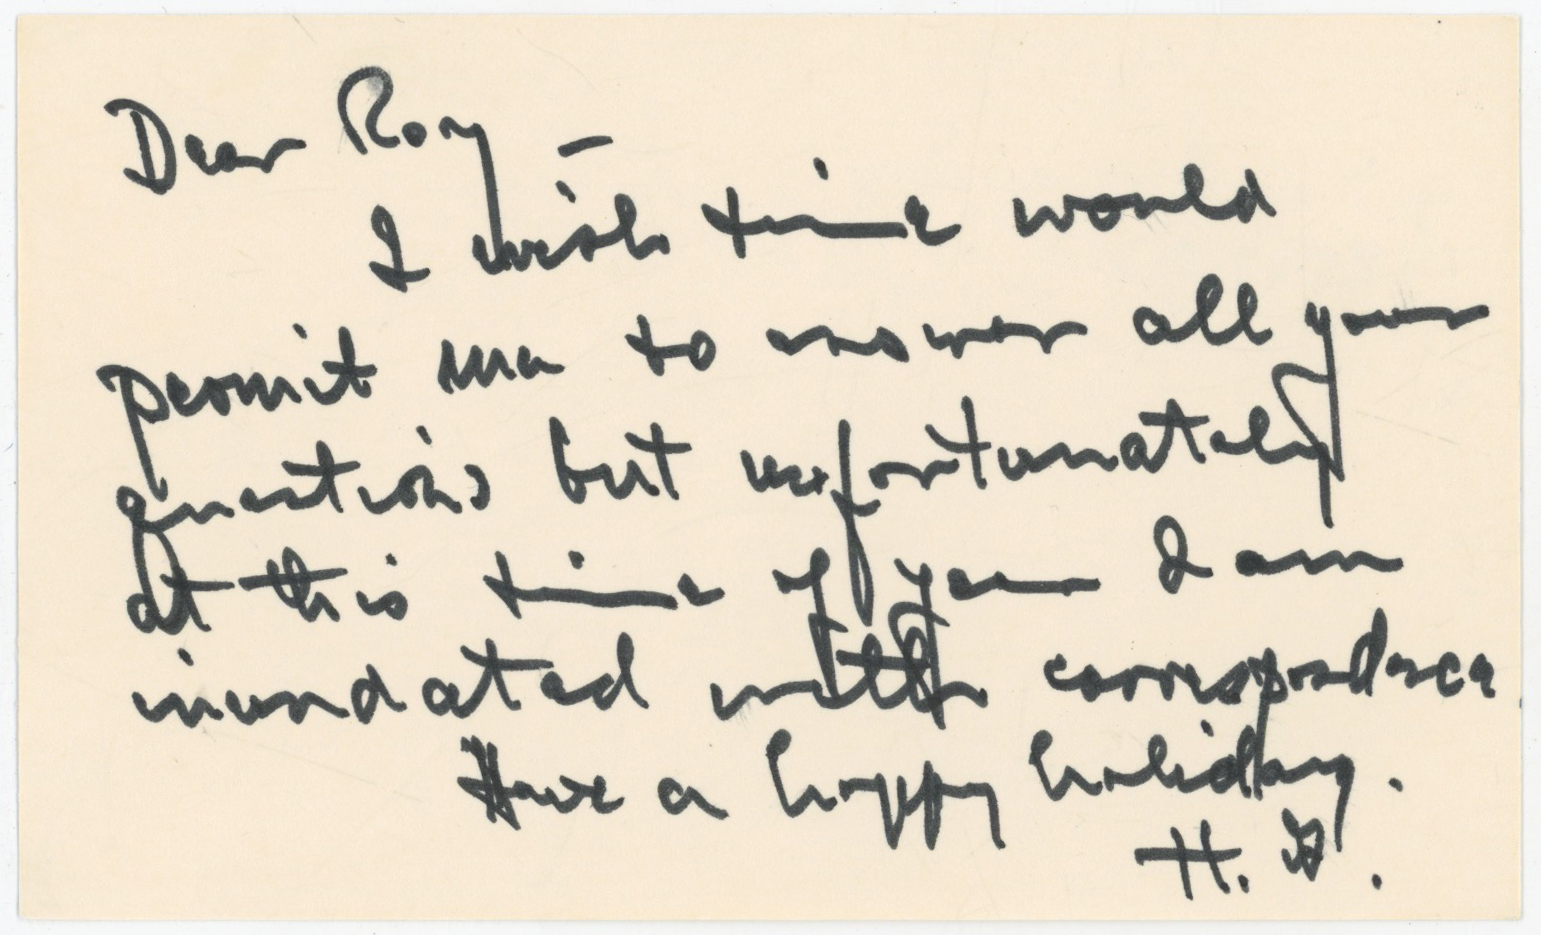 Dear Rory –
I wish time would
permit me to answer all your
questions but unfortunately
at this time of year I am
inundated with correspondence
Have a happy holiday.
H.